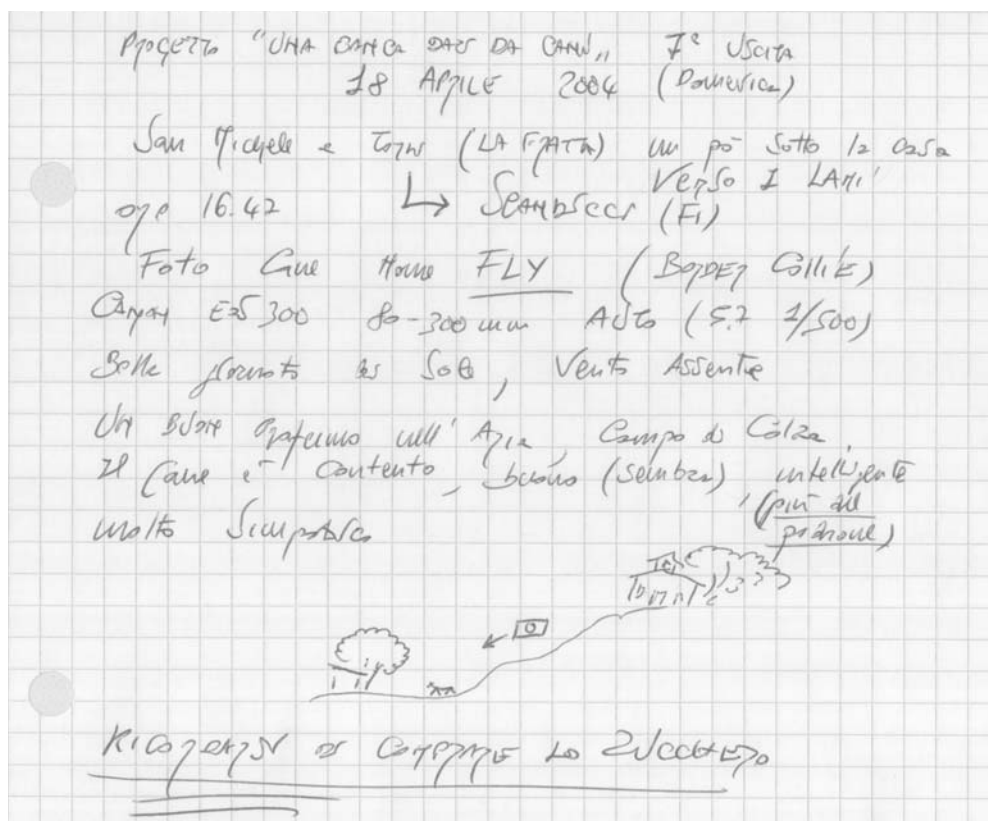 PROGETTO "UNA DA CANI" 7ª USCITA
18 APRILE 2004 (Domenica)
San Michele a Torri (LA FRATTA) un pò Sotto la casa
VERSO I LAMI
ore 16.42 ↳ SCANDICCI (FI)
Foto Cane Nome FLY (BORDER COLLIE)
Canon EOS 300 80-300 mm AUTO (5.7 1/500)
Bella giornata di Sole, Vento Assente
UN BUON profumo nell' Aria, Campo di Colza.
Il Cane è contento, buono (sembra) intelligente
molto Simpatico (più del
padrone)
RICORDARSI DI COMPRARE LO ZUCCHERO